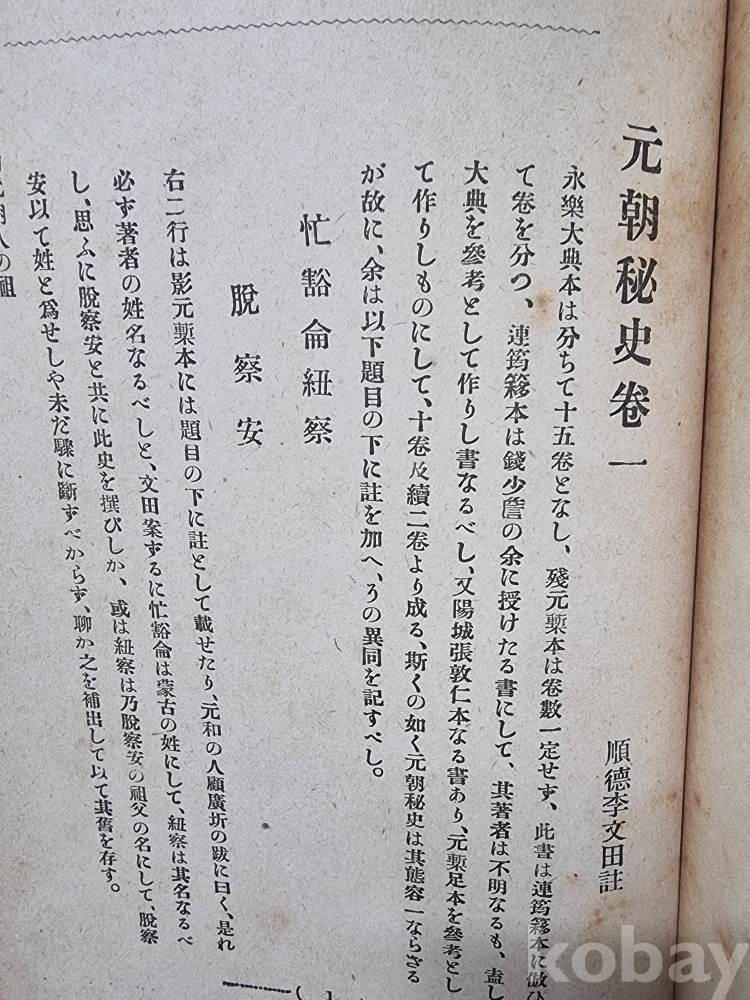 元朝秘史卷一
順德李文田註
永樂大典本は分ちて十五卷となし、殘元槧本は卷數一定せず、此書は連筠簃本に倣ひ
て卷を分つ、連筠簃本は錢少詹の余に授けたる書にして、其著者は不明なるも、盖し
大典を參考として作りし書なるべし、又陽城張敦仁本なる書あり、元槧足本を參考とし
て作りしものにして、十卷及續二卷より成る、斯くの如く元朝秘史は其態容一ならざる
が故に、余は以下題目の下に註を加へ、うの異同を記すべし。
忙豁侖紐察
脫察安
右二行は影元槧本には題目の下に註として載せたり、元和の人顧廣圻の跋に曰く、是れ
必ず著者の姓名なるべしと、文田案するに忙豁侖は蒙古の姓にして、紐察は其名なるべ
し、思ふに脫察安と共に此史を撰びしか、或は紐察は乃脫察安の祖父の名にして、脫察
安以て姓と爲せしや未だ驟に斷ずべからず、聊か之を補出して以て其舊を存す。
人の祖
kobay